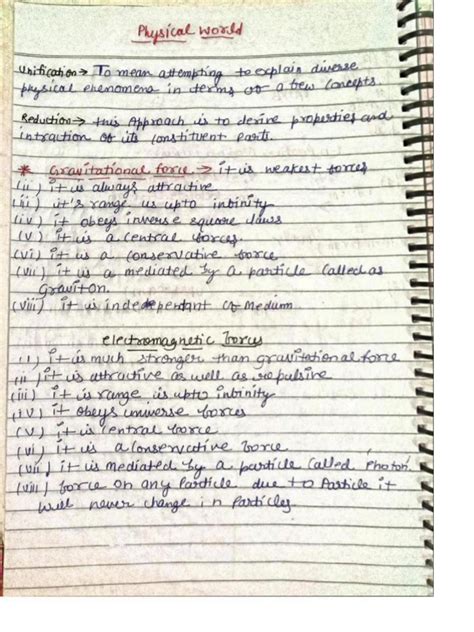 Physical World
Unification → To mean attempting to explain diverse
physical phenomena in terms of a few Concepts.
Reduction → this Approach is to derive properties and
intraction of its Constituent Parts.
* Gravitational force → it is weakest forces
(ii) it is always attractive
(iii) it's range us upto infinity
(iv) it obeys inverse square laws
(v) it is a central forces.
(vi) it is a Conservative force
(vii) it is a mediated by a particle Called as
Graviton.
(viii) it is independent of Medium
electromagnetic forces
(i) it is much stronger than gravitational force
(ii) it is attractive as well as repulsive
(iii) it is range is upto infinity
(iv) it obeys universe forces
(v) it is Central force
(vi) it is a Conservative force
(vii) it is mediated by a particle Called Photon.
(viii) force on any Particle due to Particle it
will never change in Particles